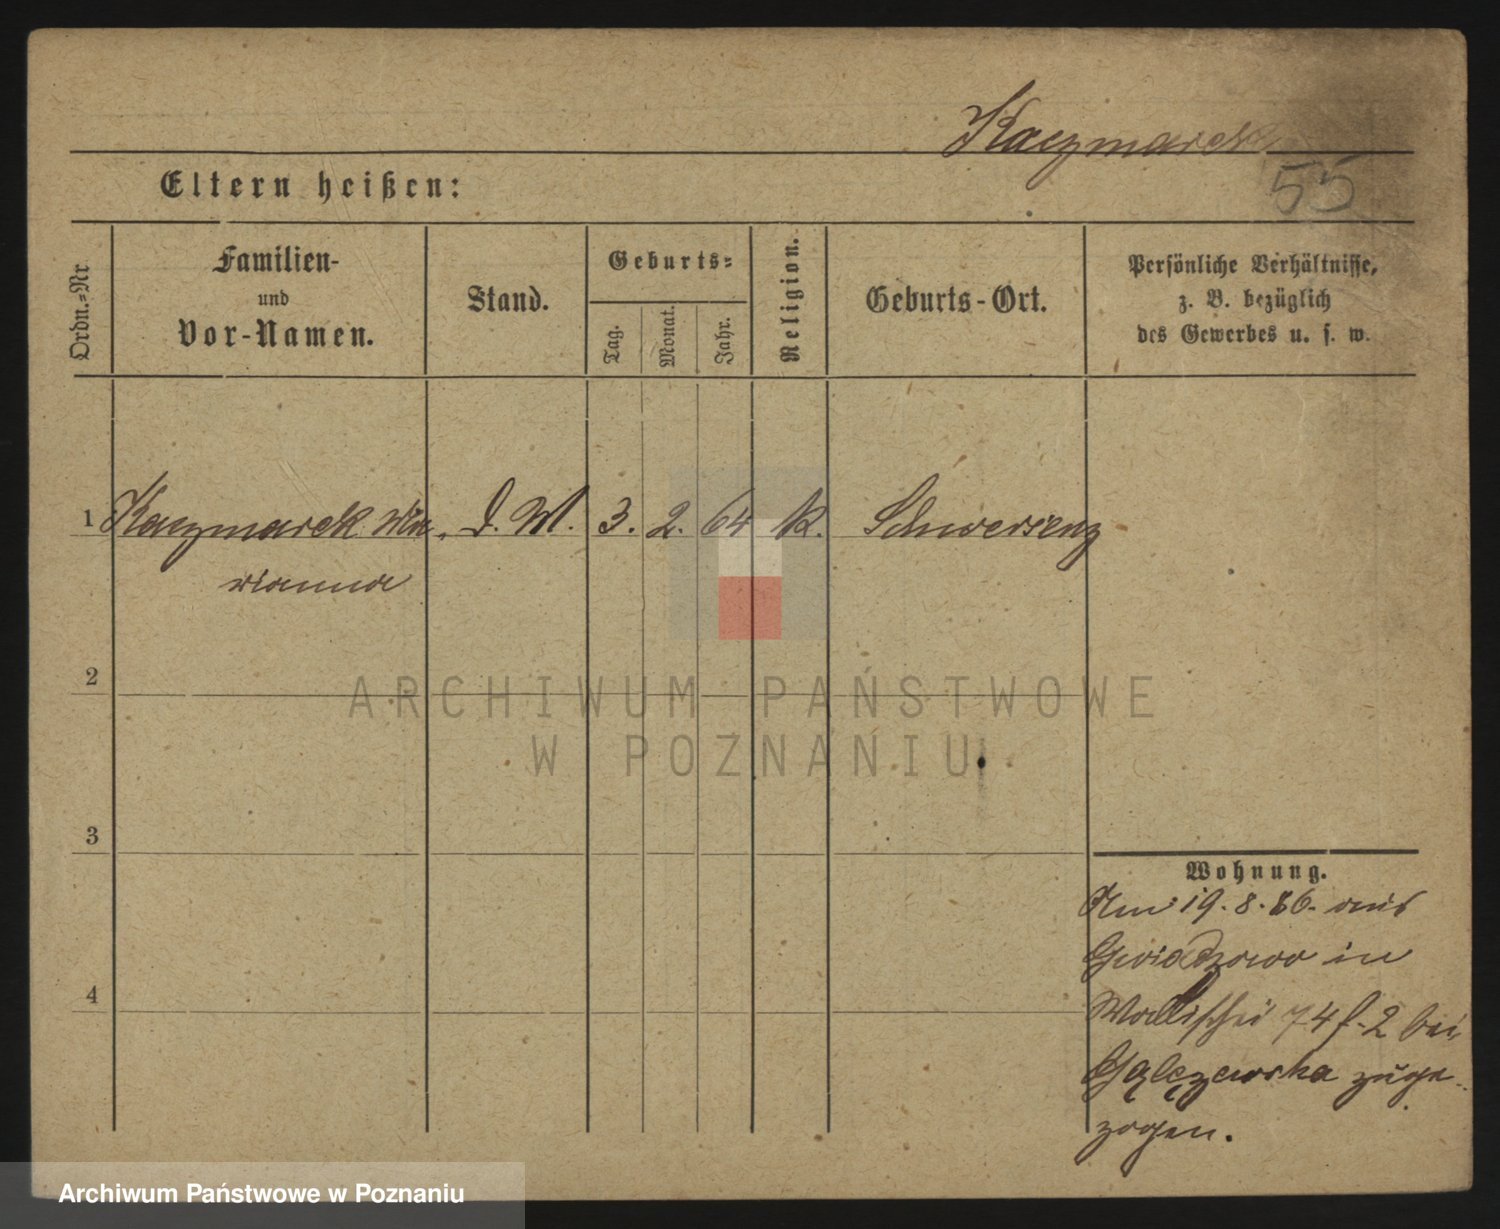 Kaczmarek
55
Eltern heißen:
Ordn.=Nr.
Familien-
und
Vor-Namen.
Stand.
Geburts=
Tag.
Monat.
Jahr.
Religion.
Geburts-Ort.
Persönliche Verhältnisse,
z. B. bezüglich
des Gewerbes u. s. w.
1 Kaczmarek D. M. 3. 2. 64 K. Schwersenz
rianna
2
3
4
Wohnung.
Am 19.8.86. aus
in
Wallischei 74 f. 2 bei
zuge-
zogen.
ARCHIWUM PAŃSTWOWE
W POZNANIU
Archiwum Państwowe w Poznaniu